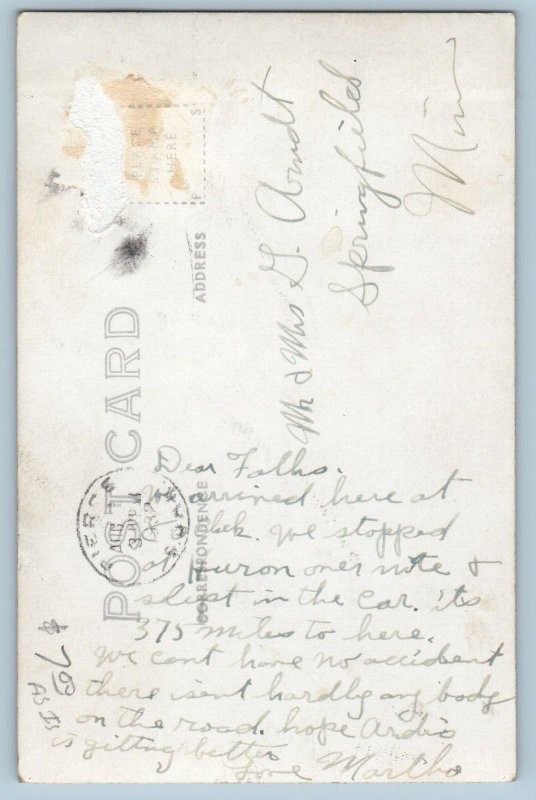 POST CARD
PLACE
STAMP
HERE
ADDRESS
CORRESPONDENCE
Mr & Mrs G. Arndt
Springfield
Minn
AUG
Dear Folks.
We arrived here at
We stopped
at Huron over nite &
slept in the car. its
375 miles to here.
We cant have no accident
there isent hardly any body
on the road. hope Ardis
is gitting better
Love Martha
$ 7
AS IS